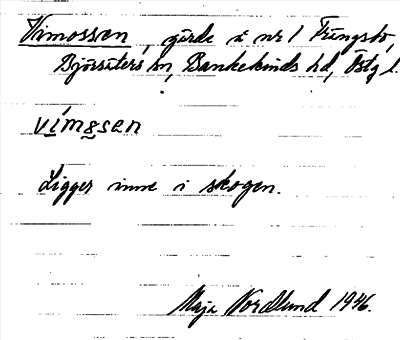 Vimossen, gärde i nr 1 Fringsbo,
Björsäters sn, Bankekinds hd, Östg l.
vímåsen
Ligger inne i skogen.
Maja Nordlund 1946.